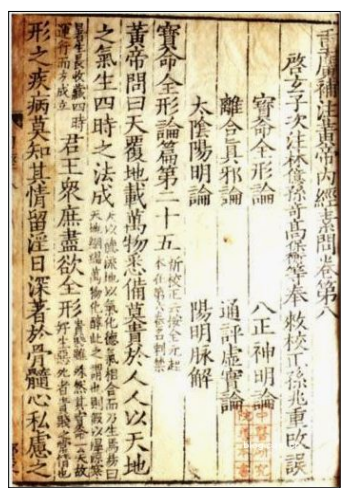 重廣補注黃帝內經素問卷第八
啓玄子次注林億孫奇高保衡等奉敕校正孫兆重改誤
寶命全形論 八正神明論
離合真邪論 通評虛實論
太陰陽明論 陽明脉解
寶命全形論篇第二十五 新校正云按全元起本在第六卷名刺禁
黃帝問曰天覆地載萬物悉備莫貴於人人以天地
之氣生四時之法成
君王衆庶盡欲全形
形之疾病莫知其情留淫日深著於骨髓心私慮之